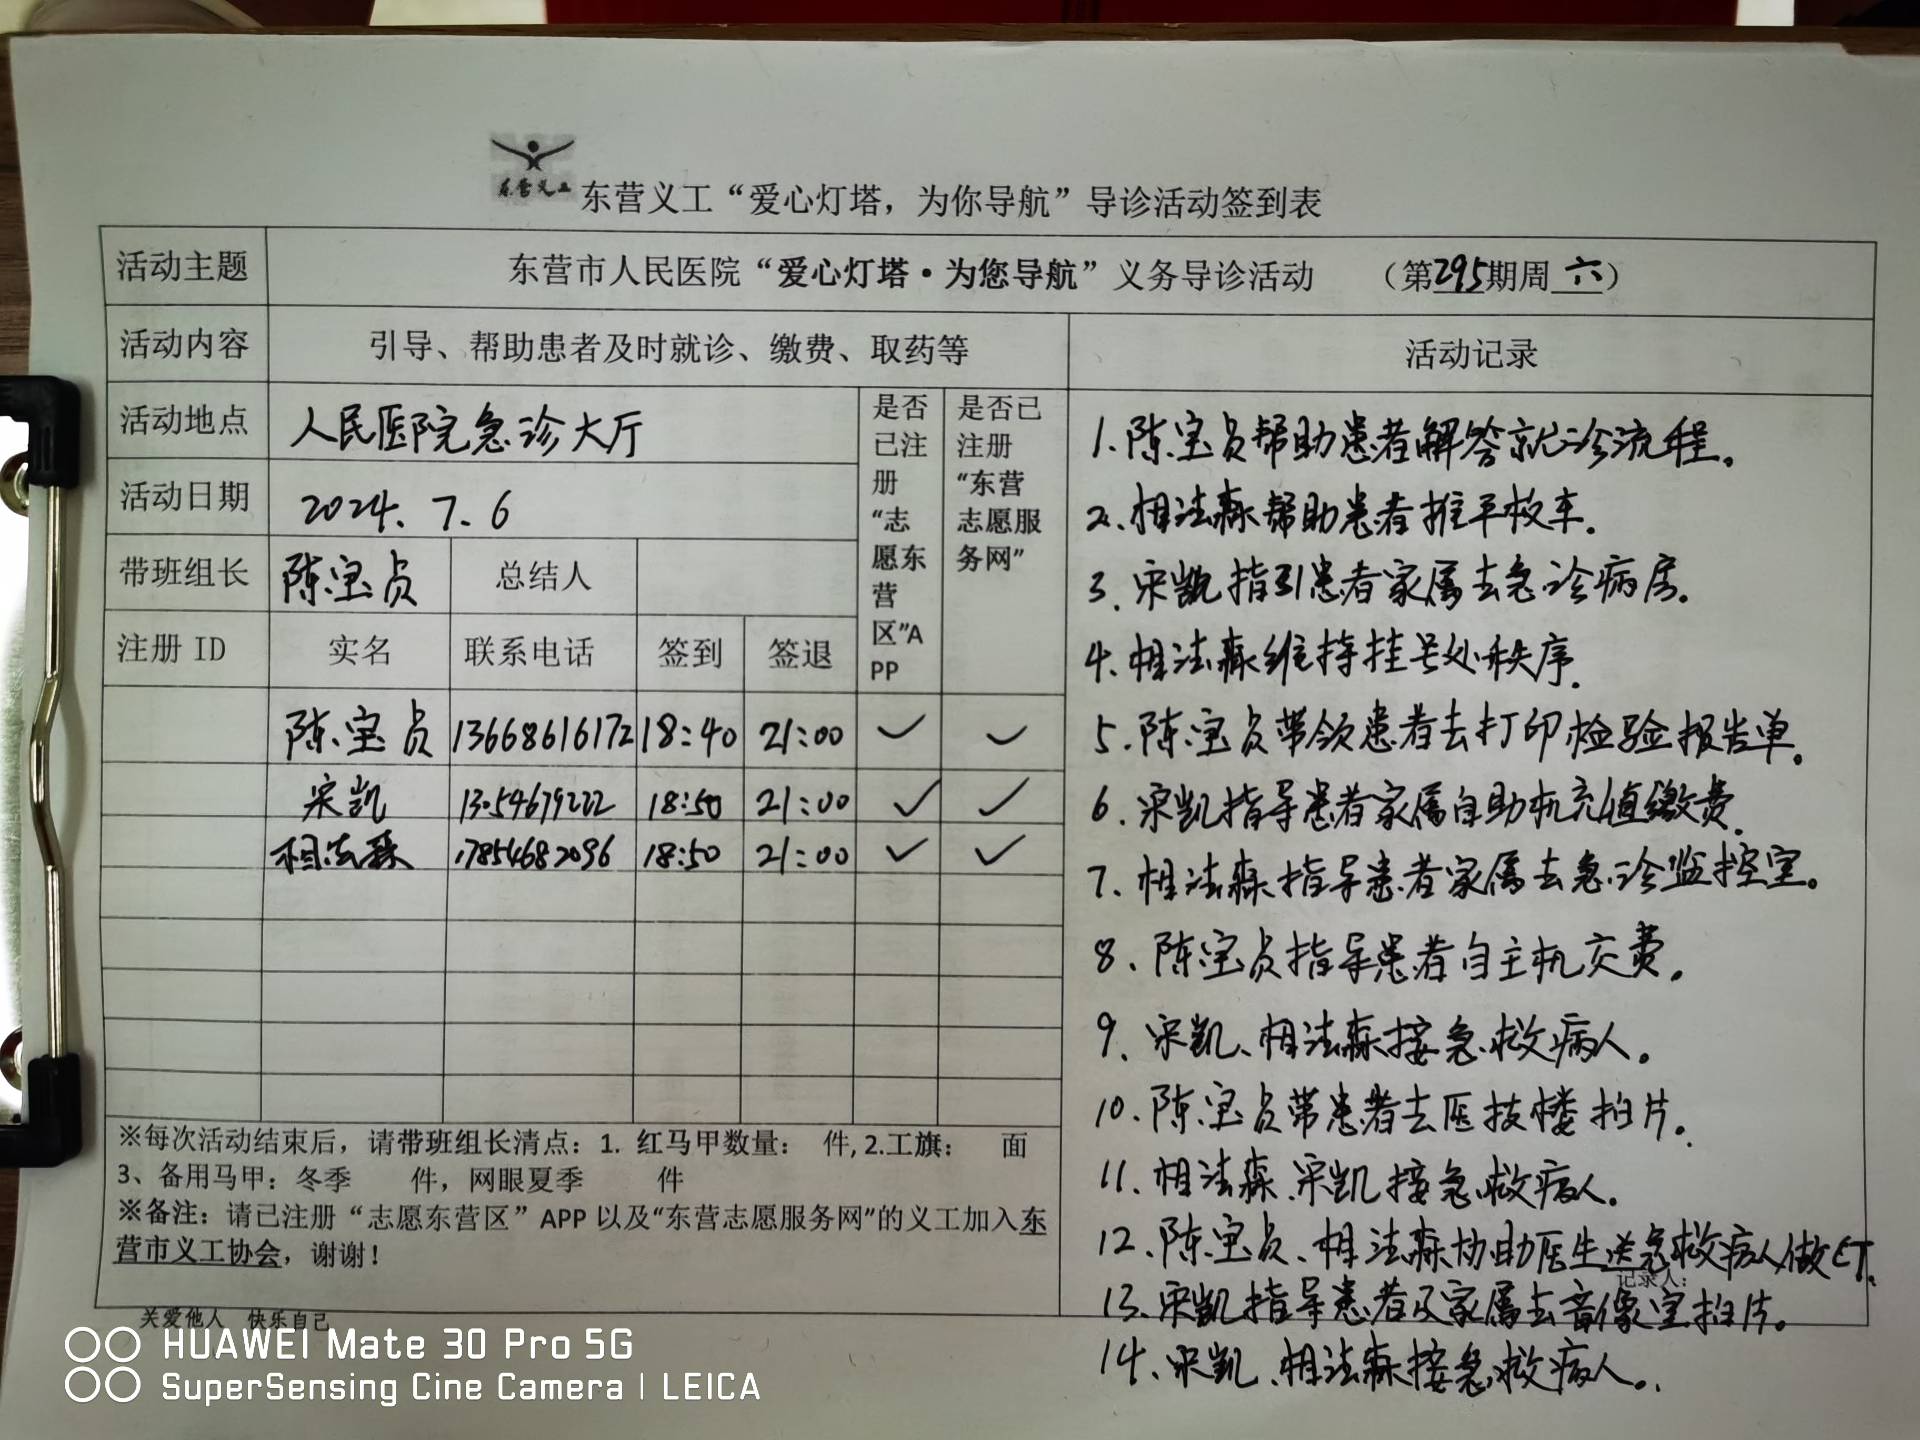 东营义工
东营义工“爱心灯塔，为你导航”导诊活动签到表
活动主题
东营市人民医院“爱心灯塔·为您导航”义务导诊活动 （第295期周六）
活动内容
引导、帮助患者及时就诊、缴费、取药等
活动记录
活动地点
人民医院急诊大厅
是否已注册“志愿东营区”APP
是否已注册“东营志愿服务网”
活动日期
2024.7.6
带班组长
陈宝员
总结人
注册 ID 实名 联系电话 签到 签退
陈宝员 13668616172 18:40 21:00 ✓ ✓
宋凯 13054679222 18:50 21:00 ✓ ✓
相法森 17854682096 18:50 21:00 ✓ ✓
1.陈宝员帮助患者解答就诊流程。
2.相法森帮助患者推平板车.
3.宋凯指引患者家属去急诊病房。
4.相法森维持挂号处秩序.
5.陈宝员带领患者去打印检验报告单。
6.宋凯指导患者家属自助机充值缴费.
7.相法森指导患者家属去急诊监控室。
8、陈宝员指导患者自主机交费。
9、宋凯、相法森接急救病人。
10、陈宝员带患者去医技楼拍片。
11、相法森、宋凯接急救病人。
12、陈宝员、相法森协助医生送急救病人做CT.
记录人：
13、宋凯指导患者及家属去音像室拍片。
14、宋凯、相法森接急救病人。
※每次活动结束后，请带班组长清点：1. 红马甲数量： 件, 2.工旗： 面
3、备用马甲：冬季 件，网眼夏季 件
※备注：请已注册“志愿东营区”APP 以及“东营志愿服务网”的义工加入东
营市义工协会，谢谢！
关爱他人 快乐自己
HUAWEI Mate 30 Pro 5G
SuperSensing Cine Camera | LEICA